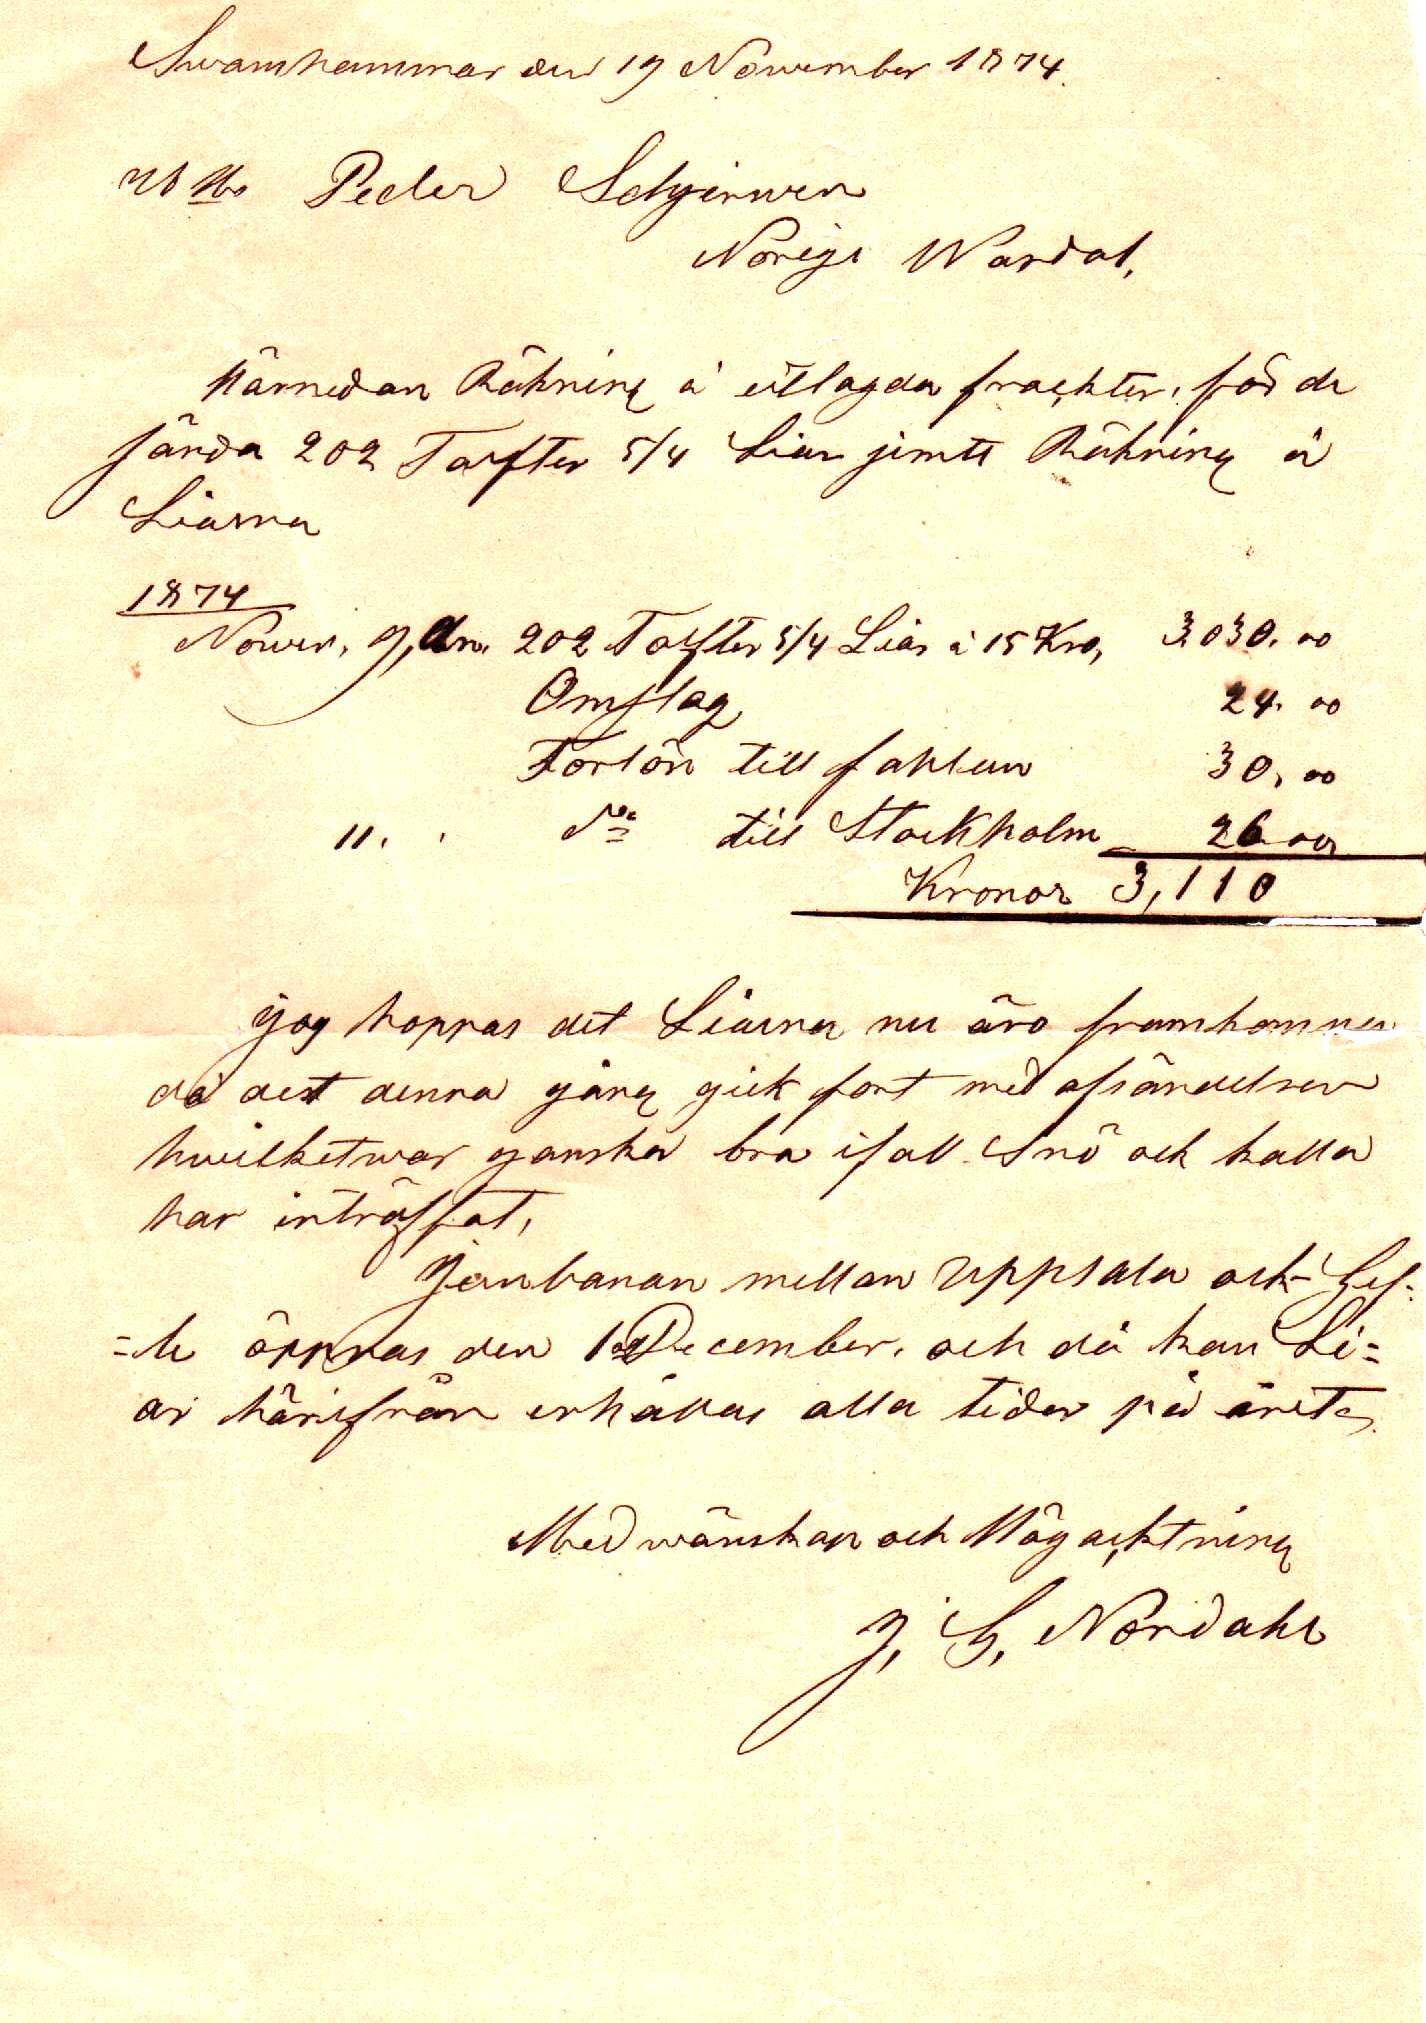 Swamhammar den 19 November 1874.
Peder Selgjerwen
Norige Wardal,
Härnedan Räkning å utlagda frackter, för de
sända 202 Tolfter 5/4 Liar jimtt Räkning å
Liarna
1874
Nower, 9, dn. 202 Tolfter 5/4 Liar à 15 Kro, 3030. 00
Omslag 24. 00
Forlön till fahlun 30, 00
11. do till Stockholm 26 00
Kronor 3,110
jag hoppas det Liarna nu äro framkomna
då det denna gång gick fort med afsändelsen
hwilket war ganska bra ifall Snö och kalla
har inträffat,
Jernbanan mellan Uppsala och Gef-
=le öppnas den 1 December, och då kan Li=
ar härifrån erhållas alla tider på året
Med wänskap och Högacktning
J, G, Nordahl